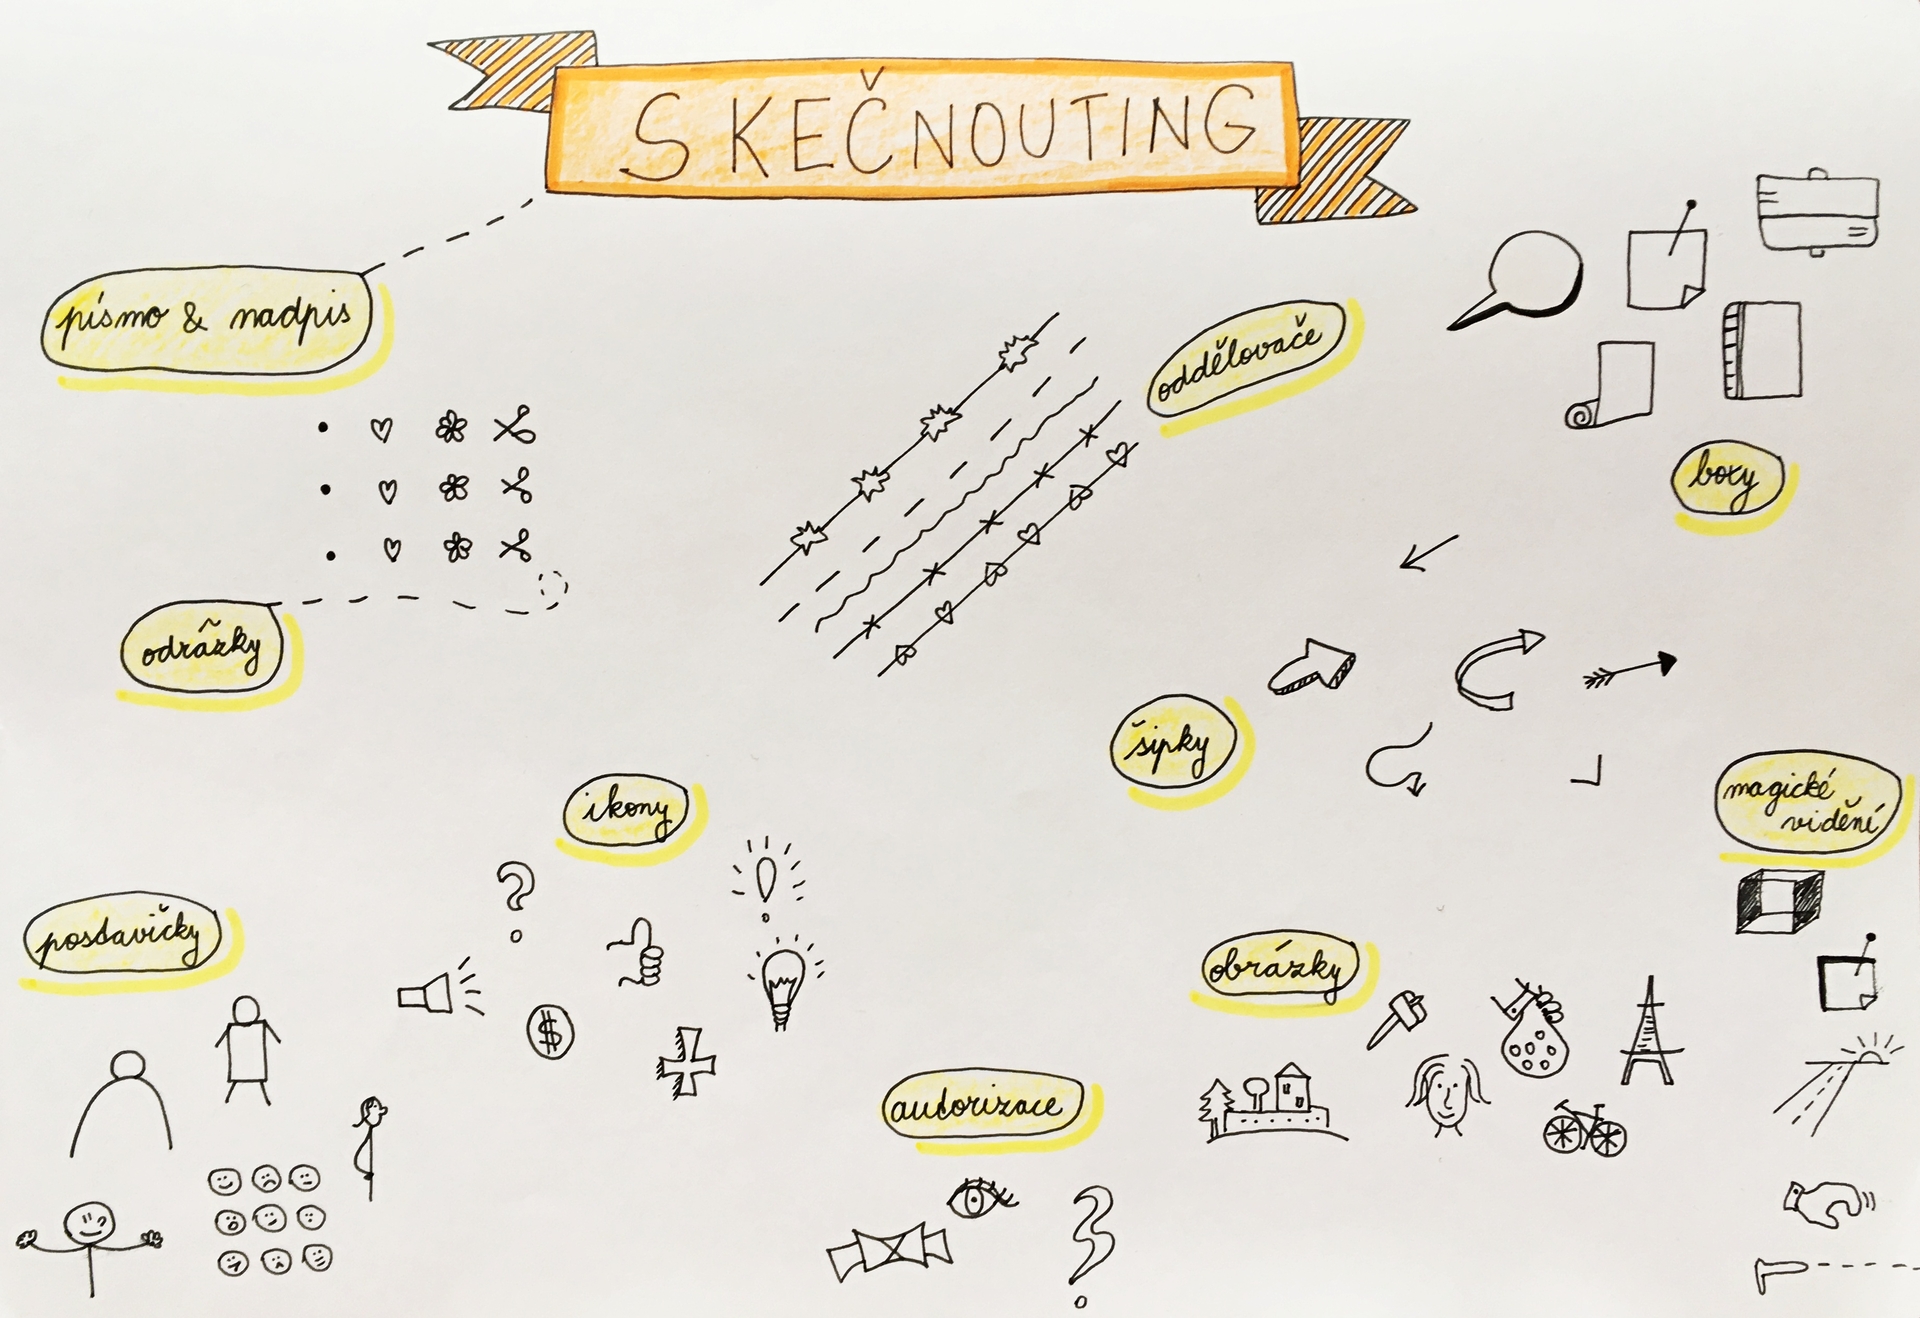 SKEČNOUTING
písmo & nadpis
oddělovače
boxy
odrázky
šipky
ikony
magické
vidění
postavičky
obrázky
autorizace
?
!
$